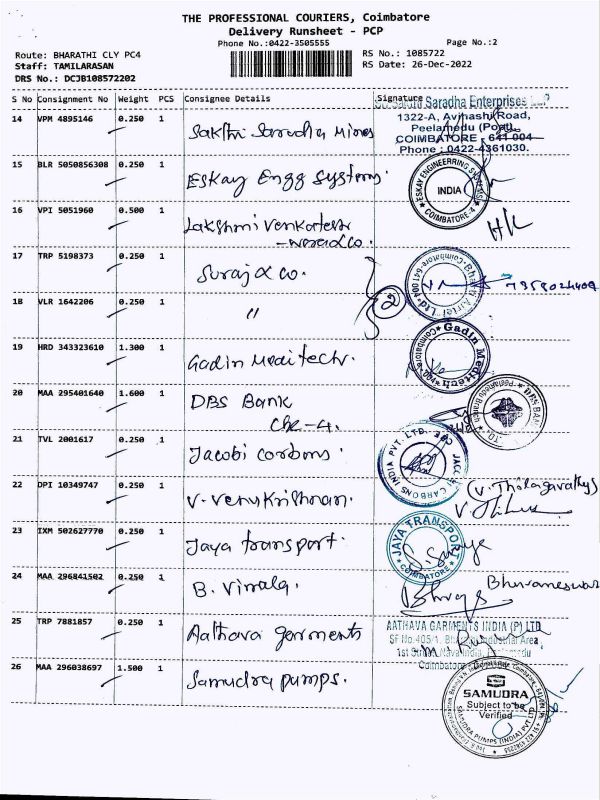 THE PROFESSIONAL COURIERS, Coimbatore
Delivery Runsheet - PCP
Phone No.:0422-3505555
Page No.:2
Route: BHARATHI CLY PC4
RS No.: 1085722
Staff: TAMILARASAN
RS Date: 26-Dec-2022
DRS No.: DCJB108572202
S No Consignment No Weight PCS Consignee Details Signature
14 VPM 4895146 0.250 1
Saradha Enterprises
1322-A, Avinashi Road,
Peelamedu (Post),
COIMBATORE - 641 004
Phone : 0422-4361030.
15 BLR 5050856308 0.250 1 Eskay Engg Systems
INDIA
COIMBATORE-4
16 VPI 5051960 0.500 1 Lakshmi Venkatesh
HK
17 TRP 5198373 0.250 1 Suraj & co.
2
18 VLR 1642206 0.250 1 "
19 HRD 343323610 1.300 1 Gadin Meditech.
Gadin Meditech
20 MAA 295401640 1.600 1 DBS Bank
Cbe-4.
21 TVL 2001617 0.250 1 Jacobi carbons.
JACOBI CARBONS INDIA PVT. LTD.
22 DPI 10349747 0.250 1 V. Venukrishnan.
23 IXM 502627770 0.250 1 Jaya transport.
JAYA TRANSPORT
COIMBATORE
24 MAA 296841502 0.250 1 B. Vimala.
Bhuvaneswari
25 TRP 7881857 0.250 1 Aathava garments
AATHAVA GARMENTS INDIA (P) LTD
SF No.405/1, Industrial Area
1st Street, Nava India,
Coimbatore
26 MAA 296038697 1.500 1 Samudra pumps.
SAMUDRA
Subject to be
Verified
SAMUDRA PUMPS (INDIA) PVT LTD